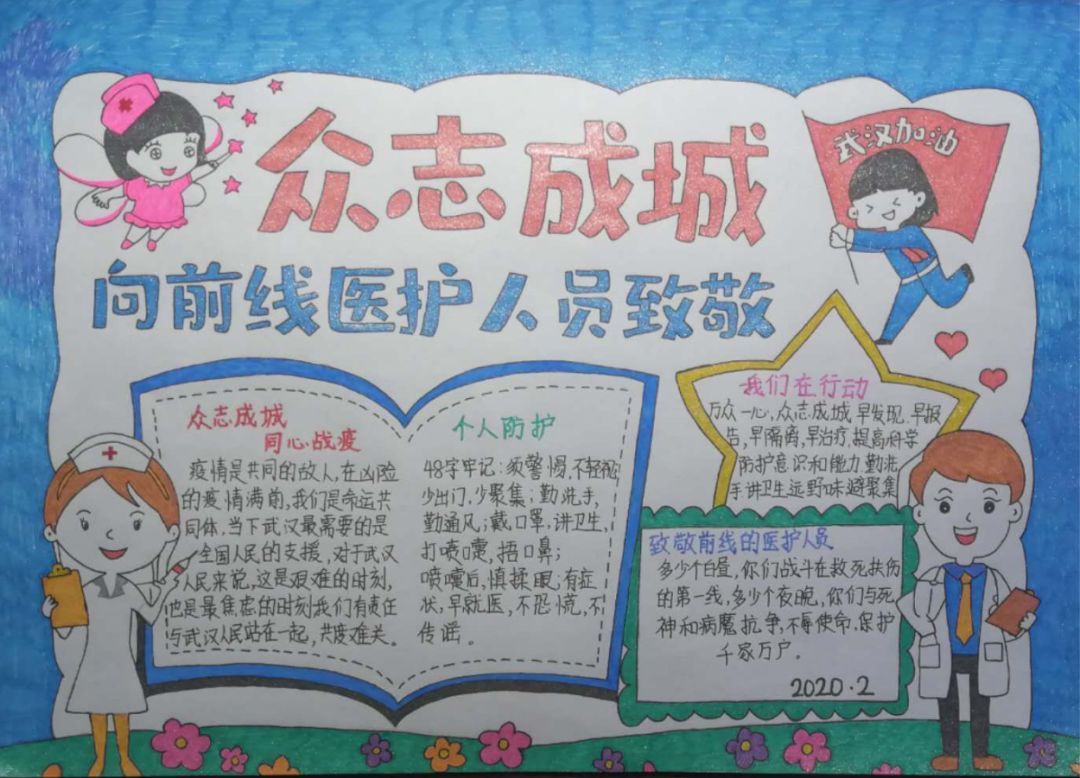 众志成城
武汉加油
向前线医护人员致敬
众志成城
同心战疫
疫情是共同的敌人,在凶险
的疫情满前,我们是命运共
同体,当下武汉最需要的是
全国人民的支援,对于武汉
人民来说,这是艰难的时刻,
也是最焦虑的时刻我们有责任
与武汉人民站在一起,共度难关。
个人防护
48字牢记:须警惕,不轻视;
少出门,少聚集;勤洗手,
勤通风;戴口罩,讲卫生,
打喷嚏,捂口鼻;
喷嚏后,慎揉眼;有症
状,早就医,不恐慌,不
传谣。
我们在行动
万众一心,众志成城,早发现.早报
告,早隔离,早治疗,提高科学
防护意识和能力勤洗
手讲卫生远野味避聚集
致敬前线的医护人员
多少个白昼,你们战斗在救死扶伤
的第一线,多少个夜晚,你们与死
神和病魔抗争,不辱使命,保护
千家万户。
2020.2